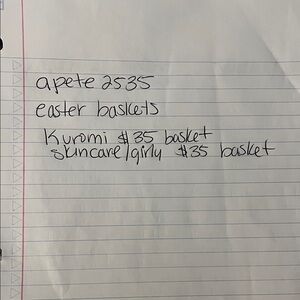 apete 2535
easter baskets
Kuromi $35 basket
skincare/girly $35 basket